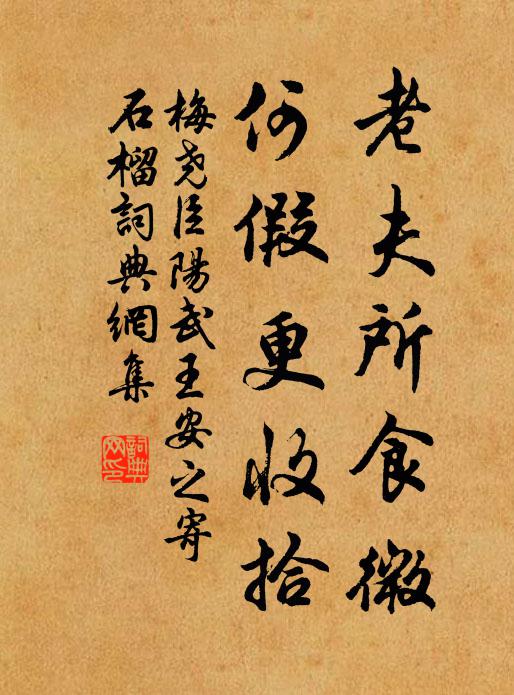 老夫所食微
何假更收拾
梅尧臣陽武王安之寄
石榴詞典網集
詞典
网印